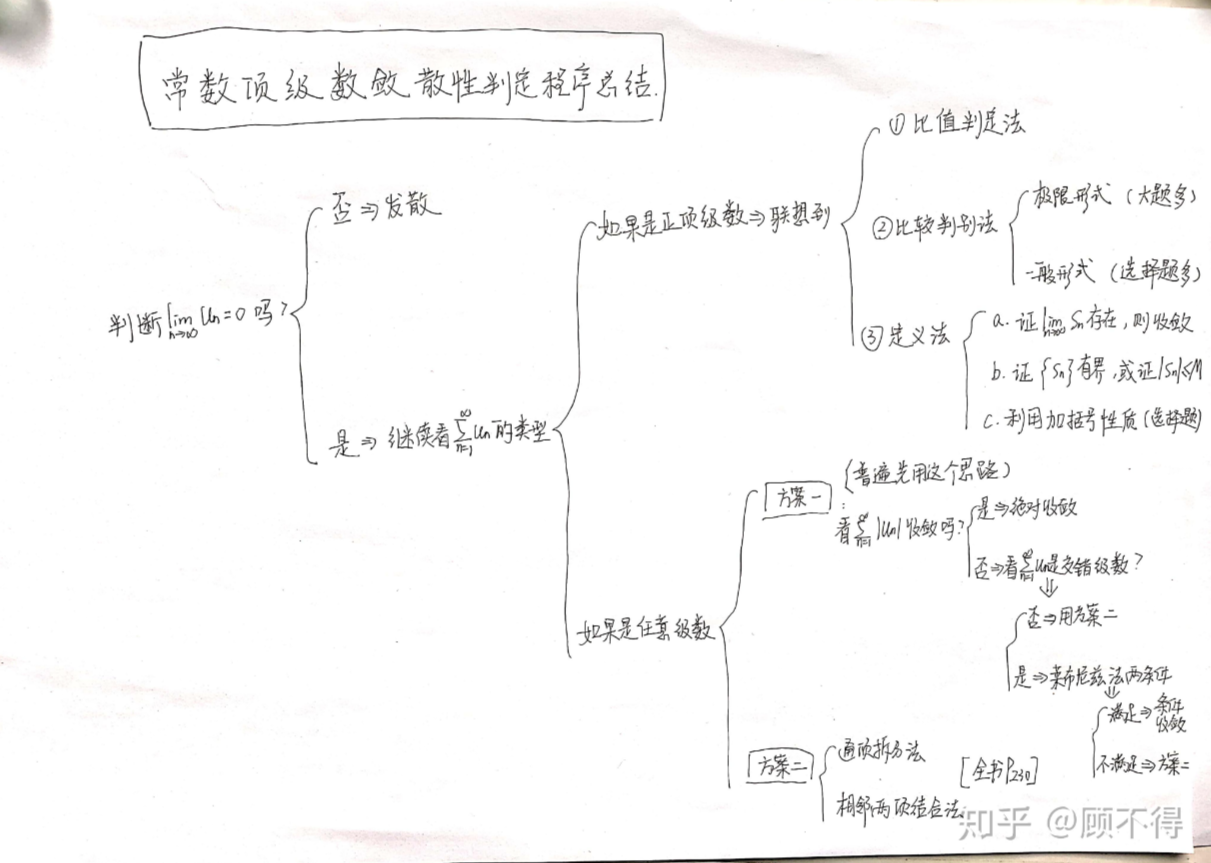 常数项级数敛散性判定程序总结.
判断lim n→∞ Un=0吗?
否⇒发散
是⇒继续看∑n=1∞Un的类型
如果是正项级数⇒联想到
①比值判定法
②比较判别法
极限形式(大题多)
一般形式(选择题多)
③定义法
a.证lim n→∞ Sn存在,则收敛
b.证{Sn}有界,或证|Sn|≤M
c.利用加括号性质(选择题)
如果是任意级数
方案一
(普遍先用这个思路)
:
看∑n=1∞|Un|收敛吗?
是⇒绝对收敛
否⇒看∑n=1∞Un是交错级数?
⇓
否⇒用方案二
是⇒莱布尼兹法两条件
⇓
满足⇒条件
收敛
不满足⇒方案二
方案二
通项拆分法
相邻两项结合法
[全书P230]
知乎 @顾不得